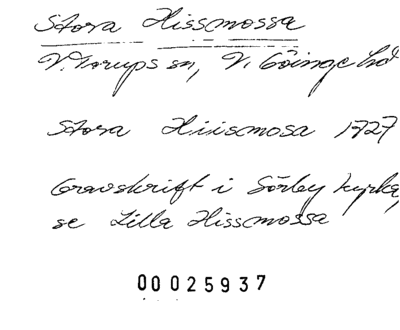 Stora Hissmossa
V. Torups sn, V. Göinge hd
Stora Hiiismosa 1727
Gravskrift i Sörby kyrka,
se Lilla Hissmossa
00025937